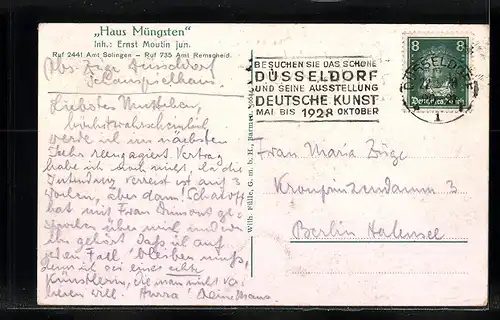 „Haus Müngsten"
Inh.: Ernst Moutin jun.
Ruf 2441 Amt Solingen – Ruf 735 Amt Remscheid.
Abs. Züge Düsseldorf
Schauspielhaus.
Liebstes Muttchen,
höchstwahrscheinlich
werde ich im nächsten
Jahr reengagiert. Vertrag
habe ich noch nicht, da die
Intendanz verreist ist auf 3
Wochen, aber dann!
hat mit Frau Dumont ge
sprochen über mich und von
ihr gehört daß ich auf
jeden Fall bleiben muß,
denn ich sei eine echte
Künstlerin, die man nicht ver
lieren will. Hurra! Deine Maus.
Wilh. Fülle, G. m. b. H., Barmen
BESUCHEN SIE DAS SCHÖNE
DÜSSELDORF
UND SEINE AUSSTELLUNG
DEUTSCHE KUNST
MAI BIS 1928 OKTOBER
8 8
Deutsches Reich
DÜSSELDORF
1
Frau Maria Züge
Kronprinzendamm 3
Berlin Halensee